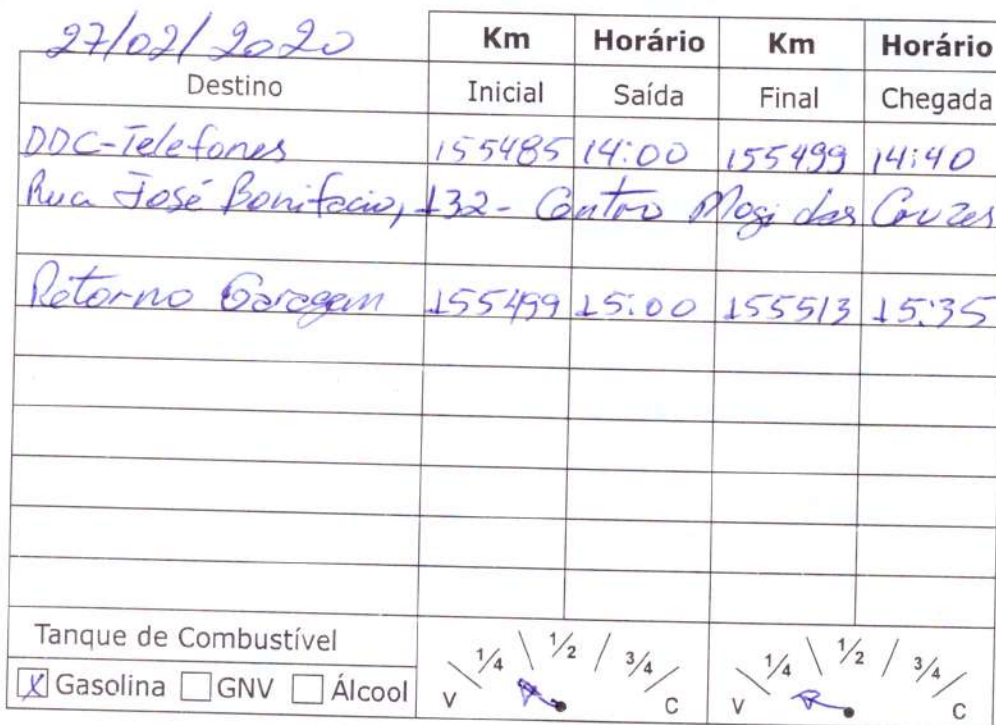 27/02/2020 Km Horário Km Horário
Destino Inicial Saída Final Chegada
DDC-Telefones 155485 14:00 155499 14:40
Rua José Bonifacio, 132 - Centro Mogi das Cruzes
Retorno Garagem 155499 15:00 155513 15:35
Tanque de Combustível
V 1/4 1/2 3/4 C V 1/4 1/2 3/4 C
X Gasolina GNV Álcool